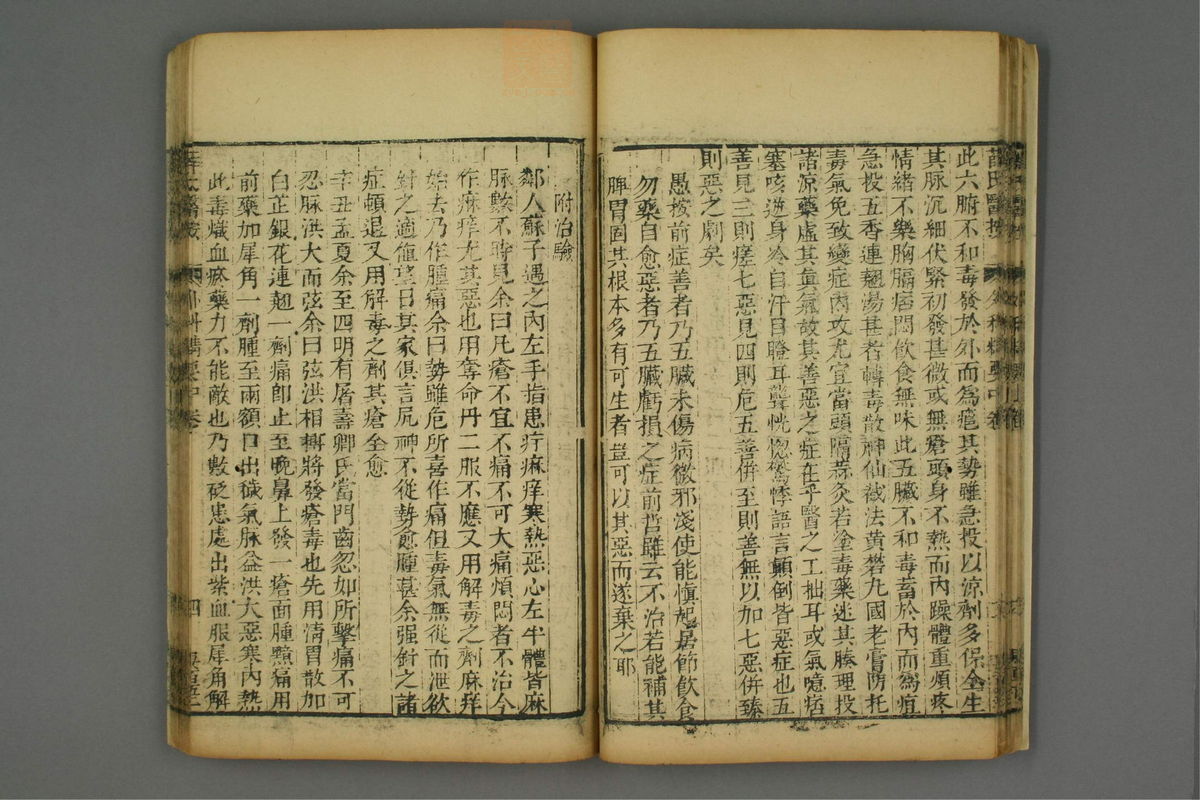 此六腑不和毒發於外而為瘡其勢雖急投以涼劑多保全生
其脉沉細伏緊初發甚微或無瘡頭身不熱而內躁體重煩疼
情緒不樂胸膈痞悶飲食無味此五臟不和毒蓄於內而為疽
急投五香連翹湯甚者轉毒散神仙截法黃礬丸國老膏防托
毒氣免致變症內攻尤宜當頭隔蒜灸若塗毒藥迷其腠理投
諸涼藥虛其真氣故其善惡之症在乎醫之工拙耳或氣噫痞
塞咳逆身冷自汗目瞪耳聾恍惚驚悸語言顛倒皆惡症也五
善見三則瘥七惡見四則危五善併至則善無以加七惡併臻
則惡之劇矣
愚按前症善者乃五臟未傷病微邪淺使能慎起居節飲食
勿藥自愈惡者乃五臟虧損之症前哲雖云不治若能補其
脾胃固其根本多有可生者豈可以其惡而遂棄之耶
附治驗
鄰人蘇子遇之內左手指患疔麻痒寒熱惡心左半體皆麻
脉數不時見余曰凡瘡不宜不痛不可大痛煩悶者不治今
作麻痒尤其惡也用奪命丹二服不應又用解毒之劑麻痒
始去乃作腫痛余曰勢雖危所喜作痛但毒氣無從而泄欲
針之適值望日其家俱言尻神不從勢愈腫甚余强針之諸
症頓退又用解毒之劑其瘡全愈
辛丑孟夏余至四明有屠壽卿氏當門齒忽如所擊痛不可
忍脉洪大而弦余曰弦洪相搏將發瘡毒也先用清胃散加
白芷銀花連翹一劑痛即止至晚鼻上發一瘡面腫黯痛用
前藥加犀角一劑腫至兩額口出穢氣脉益洪大惡寒內熱
此毒熾血瘀藥力不能敵也乃數砭患處出紫血服犀角解
四